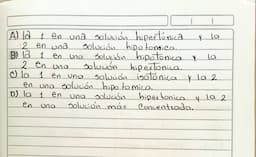 A) la 1 en una solución hipertónica y la
2 en una solución hipotonica.
B) la 1 en una solución hipotónica y la
2 en una solución hipertónica.
C) la 1 en una solución isotónica y la 2
en una solución hipotonica.
D) la 1 en una solución hipertonica y la 2
en una solución más concentrada.